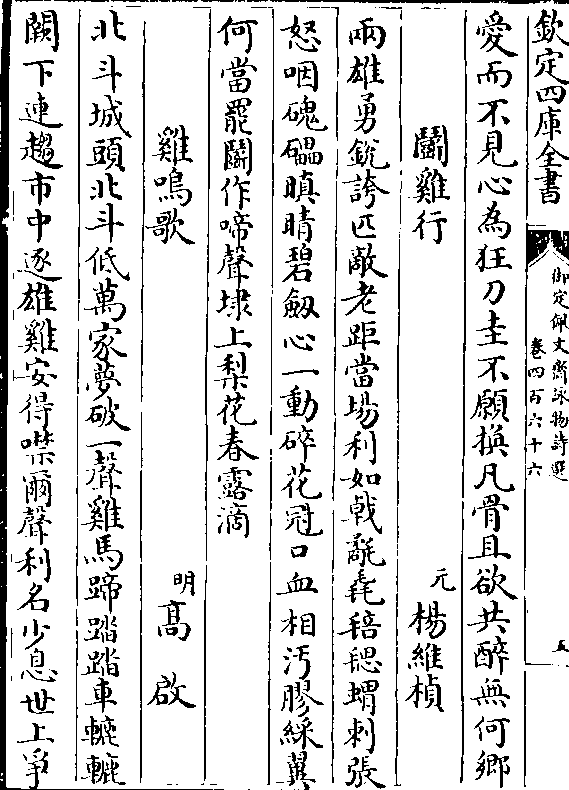 欽定四庫全書
御定佩文齋詠物詩選
卷四百六十六
五
愛而不見心為狂刀圭不願換凡骨且欲共醉無何鄉
鬬雞行
元
楊維楨
兩雄勇銳誇匹敵老距當場利如戟毸毿𣯶毸蝟刺張
怒咽磈礧瞋睛碧劔心一動碎花冠口血相汚膠綵翼
何當罷鬬作啼聲埭上梨花春露滴
雞鳴歌
明
高啟
北斗城頭北斗低萬家夢破一聲雞馬蹄踏踏車轆轆
闕下連趨市中逐雄雞安得噤爾聲利名少息世上爭